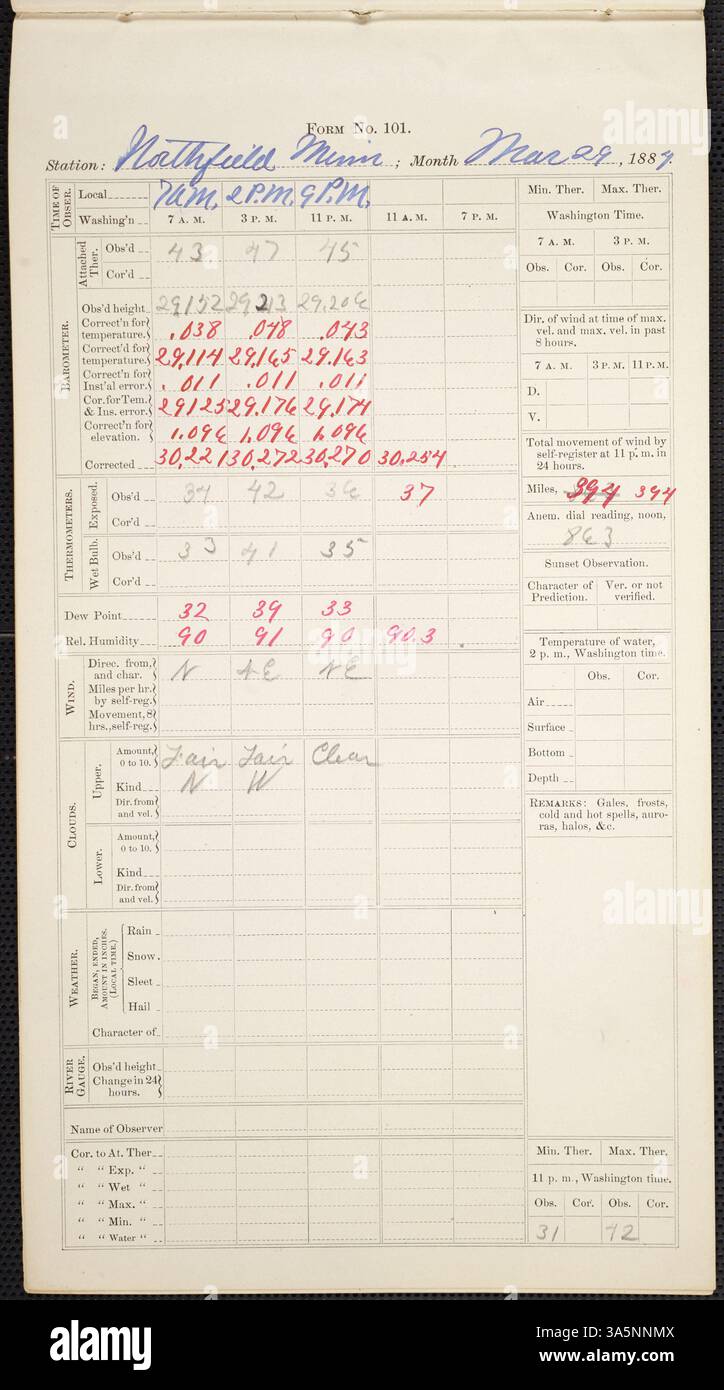 FORM No. 101.
Station: Northfield Minn ; Month Mar 29, 1889.
TIME OF OBSER.
Local 7 A.M. 2 P.M. 9 P.M.
Washing'n 7 A. M. 3 P. M. 11 P. M. 11 A. M. 7 P. M.
BAROMETER.
Attached Ther.
Obs'd 43 47 45
Cor'd
Obs'd height 29,152 29,213 29,206
Correct'n for temperature. .038 .048 .043
Correct'd for temperature. 29,114 29,165 29,163
Correct'n for Inst'al error. .011 .011 .011
Cor. for Tem. & Ins. error. 29,125 29,176 29,174
Correct'n for elevation. 1.096 1.096 1.096
Corrected 30,221 30,272 30,270 30.254
THERMOMETERS.
Exposed.
Obs'd 34 42 36 37
Cor'd
Wet Bulb.
Obs'd 33 41 35
Cor'd
Dew Point 32 39 33
Rel. Humidity 90 91 90 90.3
WIND.
Direc. from, and char. N NE NE
Miles per hr. by self-reg.
Movement, 8 hrs., self-reg.
CLOUDS.
Upper.
Amount, 0 to 10. Fair Fair Clear
Kind N W
Dir. from and vel.
Lower.
Amount, 0 to 10.
Kind
Dir. from and vel.
WEATHER.
BEGAN, ENDED, AMOUNT IN INCHES. (LOCAL TIME.)
Rain
Snow
Sleet
Hail
Character of
RIVER GAUGE.
Obs'd height
Change in 24 hours.
Name of Observer
Cor. to At. Ther
" " Exp. "
" " Wet "
" " Max. "
" " Min. "
" " Water "
Min. Ther. Max. Ther.
Washington Time.
7 A. M. 3 P. M.
Obs. Cor. Obs. Cor.
Dir. of wind at time of max. vel. and max. vel. in past 8 hours.
7 A. M. 3 P. M. 11 P. M.
D.
V.
Total movement of wind by self-register at 11 p. m. in 24 hours.
Miles, 394 394
Anem. dial reading, noon,
863
Sunset Observation.
Character of Prediction. Ver. or not verified.
Temperature of water, 2 p. m., Washington time.
Obs. Cor.
Air
Surface
Bottom
Depth
REMARKS: Gales, frosts, cold and hot spells, auroras, halos, &c.
Min. Ther. Max. Ther.
11 p. m., Washington time.
Obs. Cor. Obs. Cor.
31 42
alamy
alamy
Image ID: 3A5NNMX
www.alamy.com